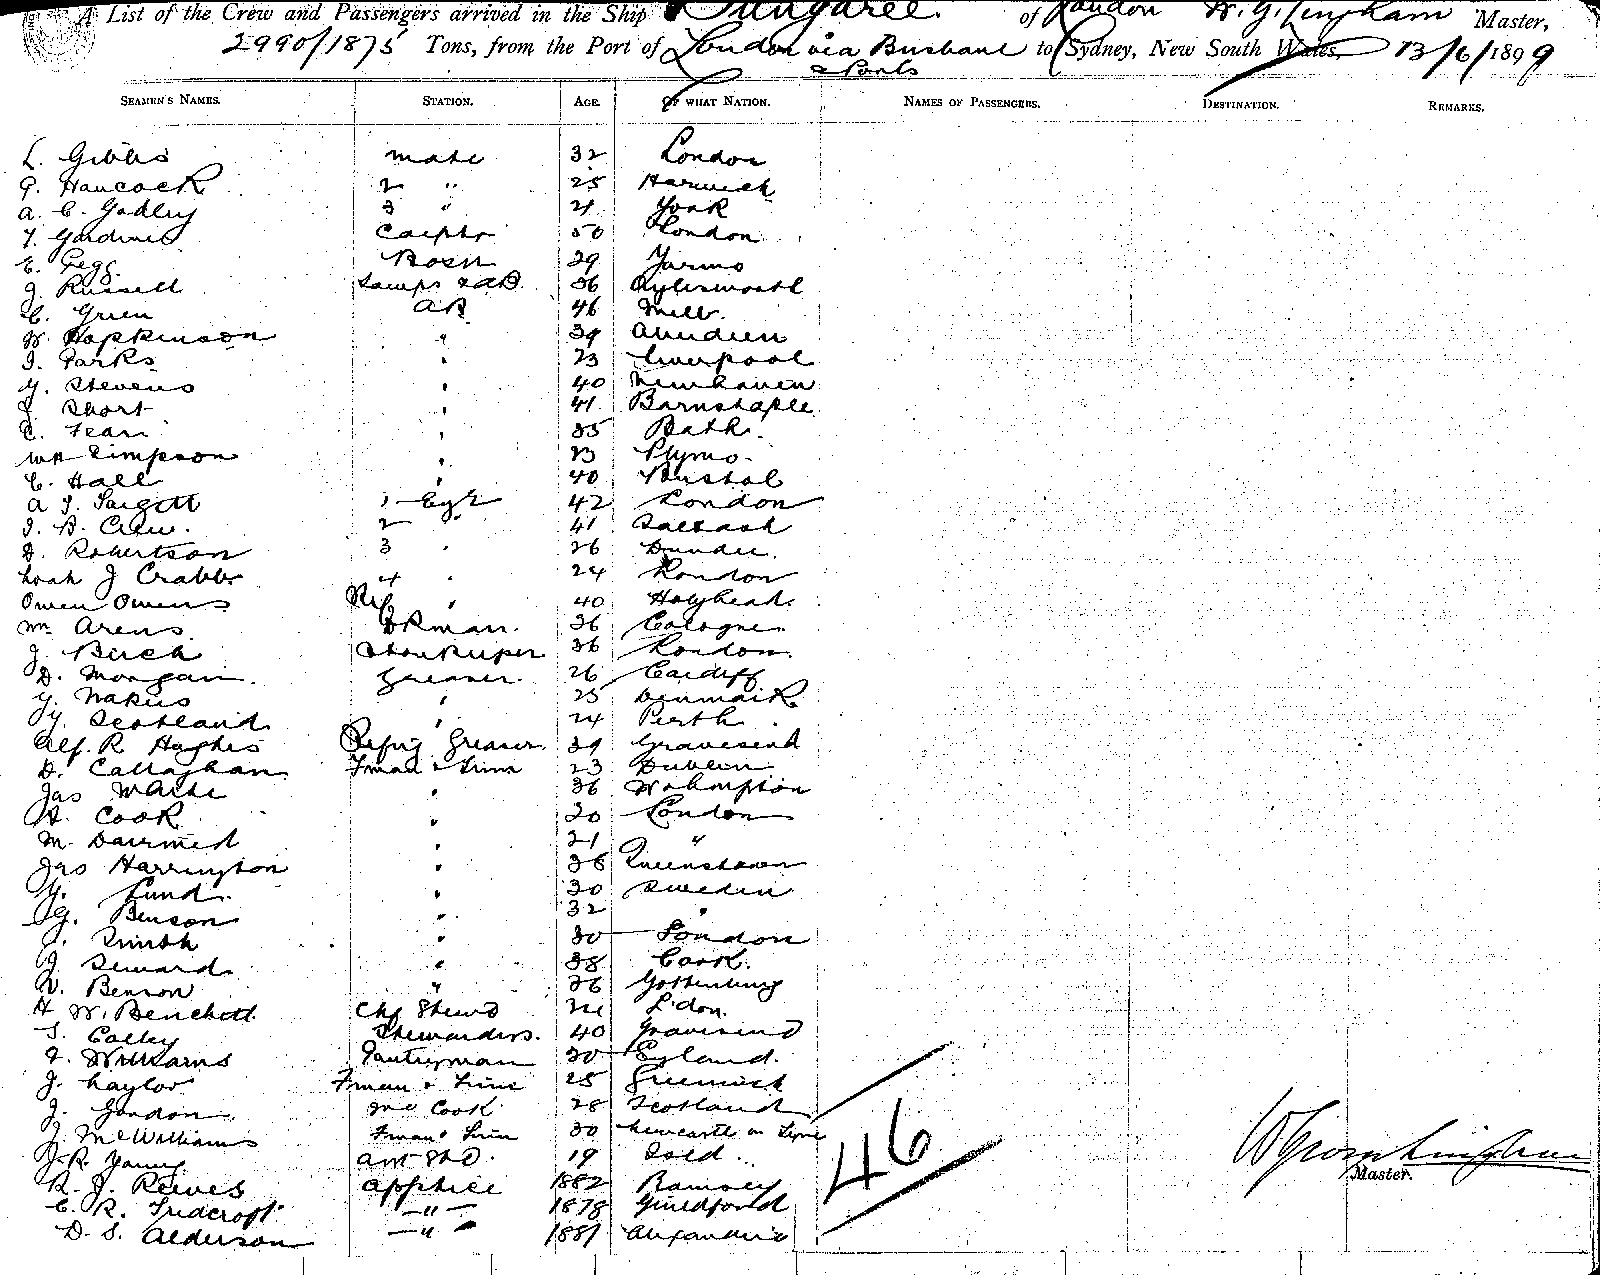 A List of the Crew and Passengers arrived in the Ship Bungaree. of London W. G. Lingham Master,
2990/1875 Tons, from the Port of London via Brisbane to Sydney, New South Wales, 13/6/1899
& Ports
SEAMEN'S NAMES. STATION. AGE. OF WHAT NATION. NAMES OF PASSENGERS. DESTINATION. REMARKS.
L. Gibbs mate 32 London
G. Hancock 2 " 25 Harwich
A. C. Godley 3 " 21 York
Gardiner Carptr 50 London
E. Gegg Bosn 29 Yarmo
J. Russell Lamps & AB 36 Aylesworth
Green AB 46 Mell
W. Hopkinson " 39 Aberdeen
J. Parks " 23 Liverpool
G. Stevens " 40 Newhaven
Short " 41 Barnstaple
C. Fear " 35 Bath.
Wm Simpson " 23 Plymo.
C. Hall " 40 Bristol
A. J. Sargett 1 Eng 42 London
J. B. Crew. 2 " 41 Saltash
D. Robertson 3 " 26 Dundee.
Noah J Crabb 4 " 24 London
Owen Owens Ref " 40 Holyhead.
Wm Arens Dkman. 36 Cologne
J. Birch Storekeeper 36 London.
D. Morgan. Greaser. 26 Cardiff
Nakus " 25 Denmark
Scotland " 24 Perth
Alf. R. Hughes Refrig Greaser. 39 Gravesend
D. Callaghan Fman & Trim 23 Dublin
Jas White " 36 Wohampton
Cook " 20 London
M. Dairmed " 21 "
Jas Harrington " 38 Queenstown
Lund. " 30 Sweden
G. Benson " 32 "
J. Smith " 30 London
J. Seward " 38 Cork.
Benson " 36 Gottenburg
H W. Benchott Chf Stewd L'don.
Colley Stewardess. 40 Gravesend
J. Williams Pantryman 30 England.
J. Naylor Fman & Trim 25 Greenwich
J. Gordon Cook 28 Scotland
J. McWilliams Fman & Trim 30 Newcastle on Tyne
J. R. Young Asst Std. 19
R. J. Reeves Apptice 1882 Ramsey
C. R. —"— 1878 Guildford
D. S. Alderson —"— 1881 Alexandria
46
Master.